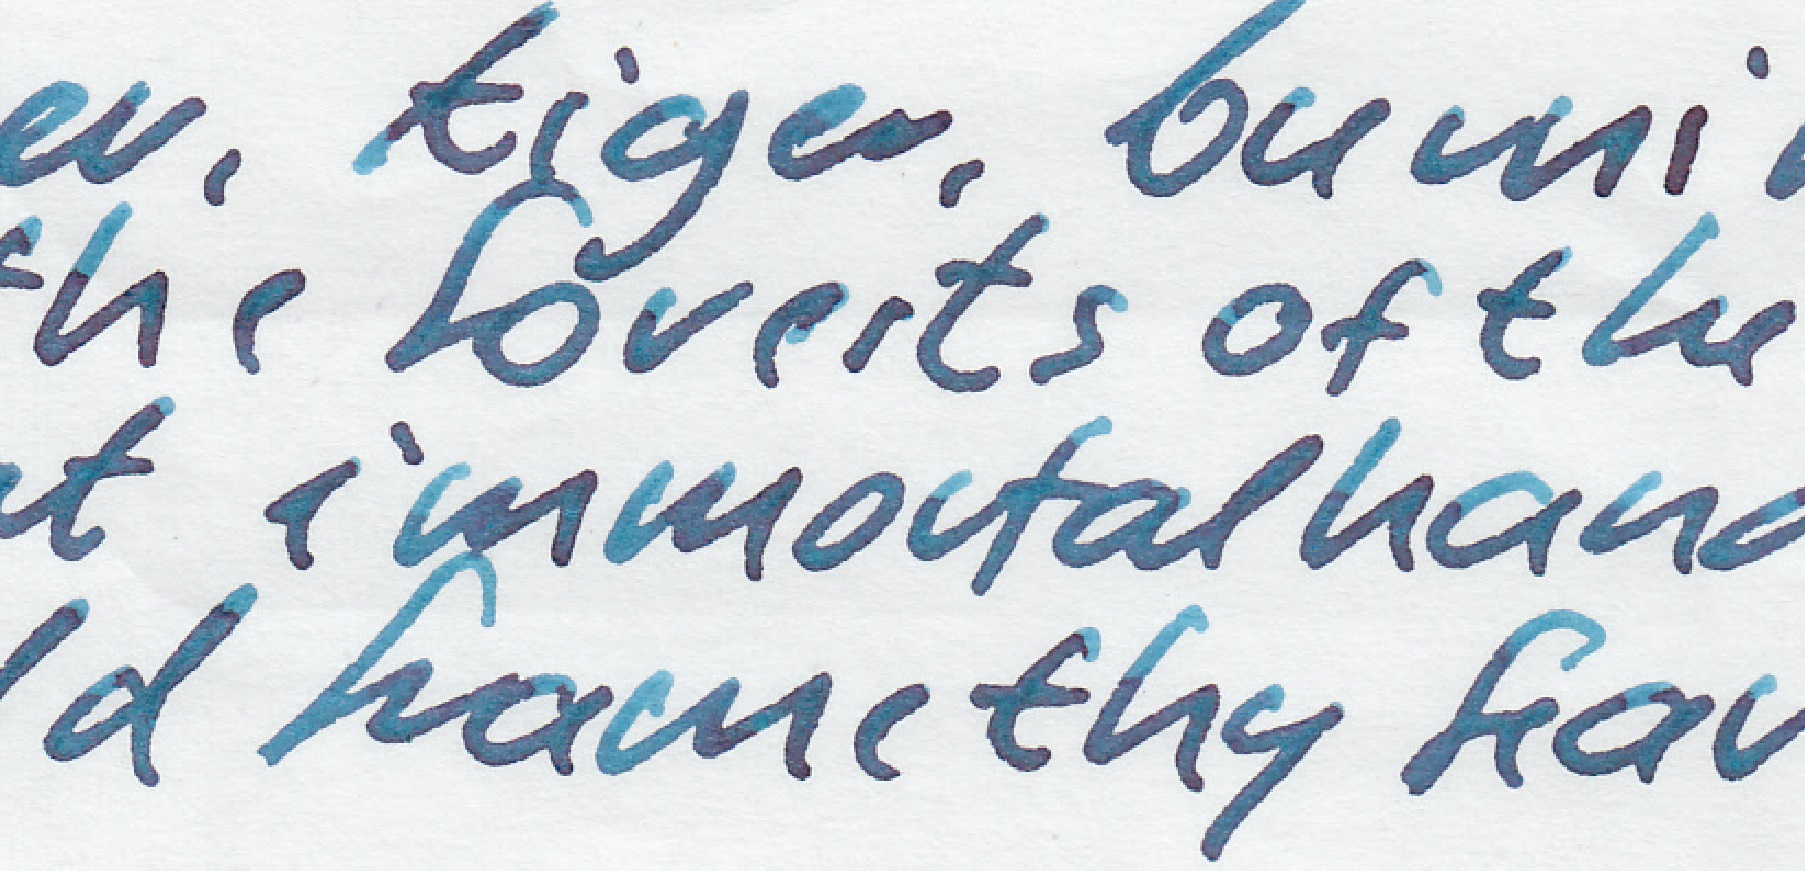 er, tiger, burni
the forests of the
at immortal hand
ld frame thy fear